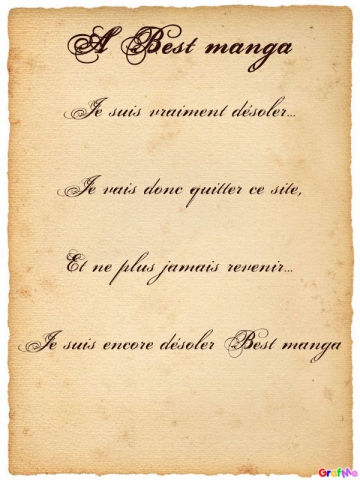 A Best manga
Je suis vraiment désoler...
Je vais donc quitter ce site,
Et ne plus jamais revenir...
Je suis encore désoler Best manga
GrafMe